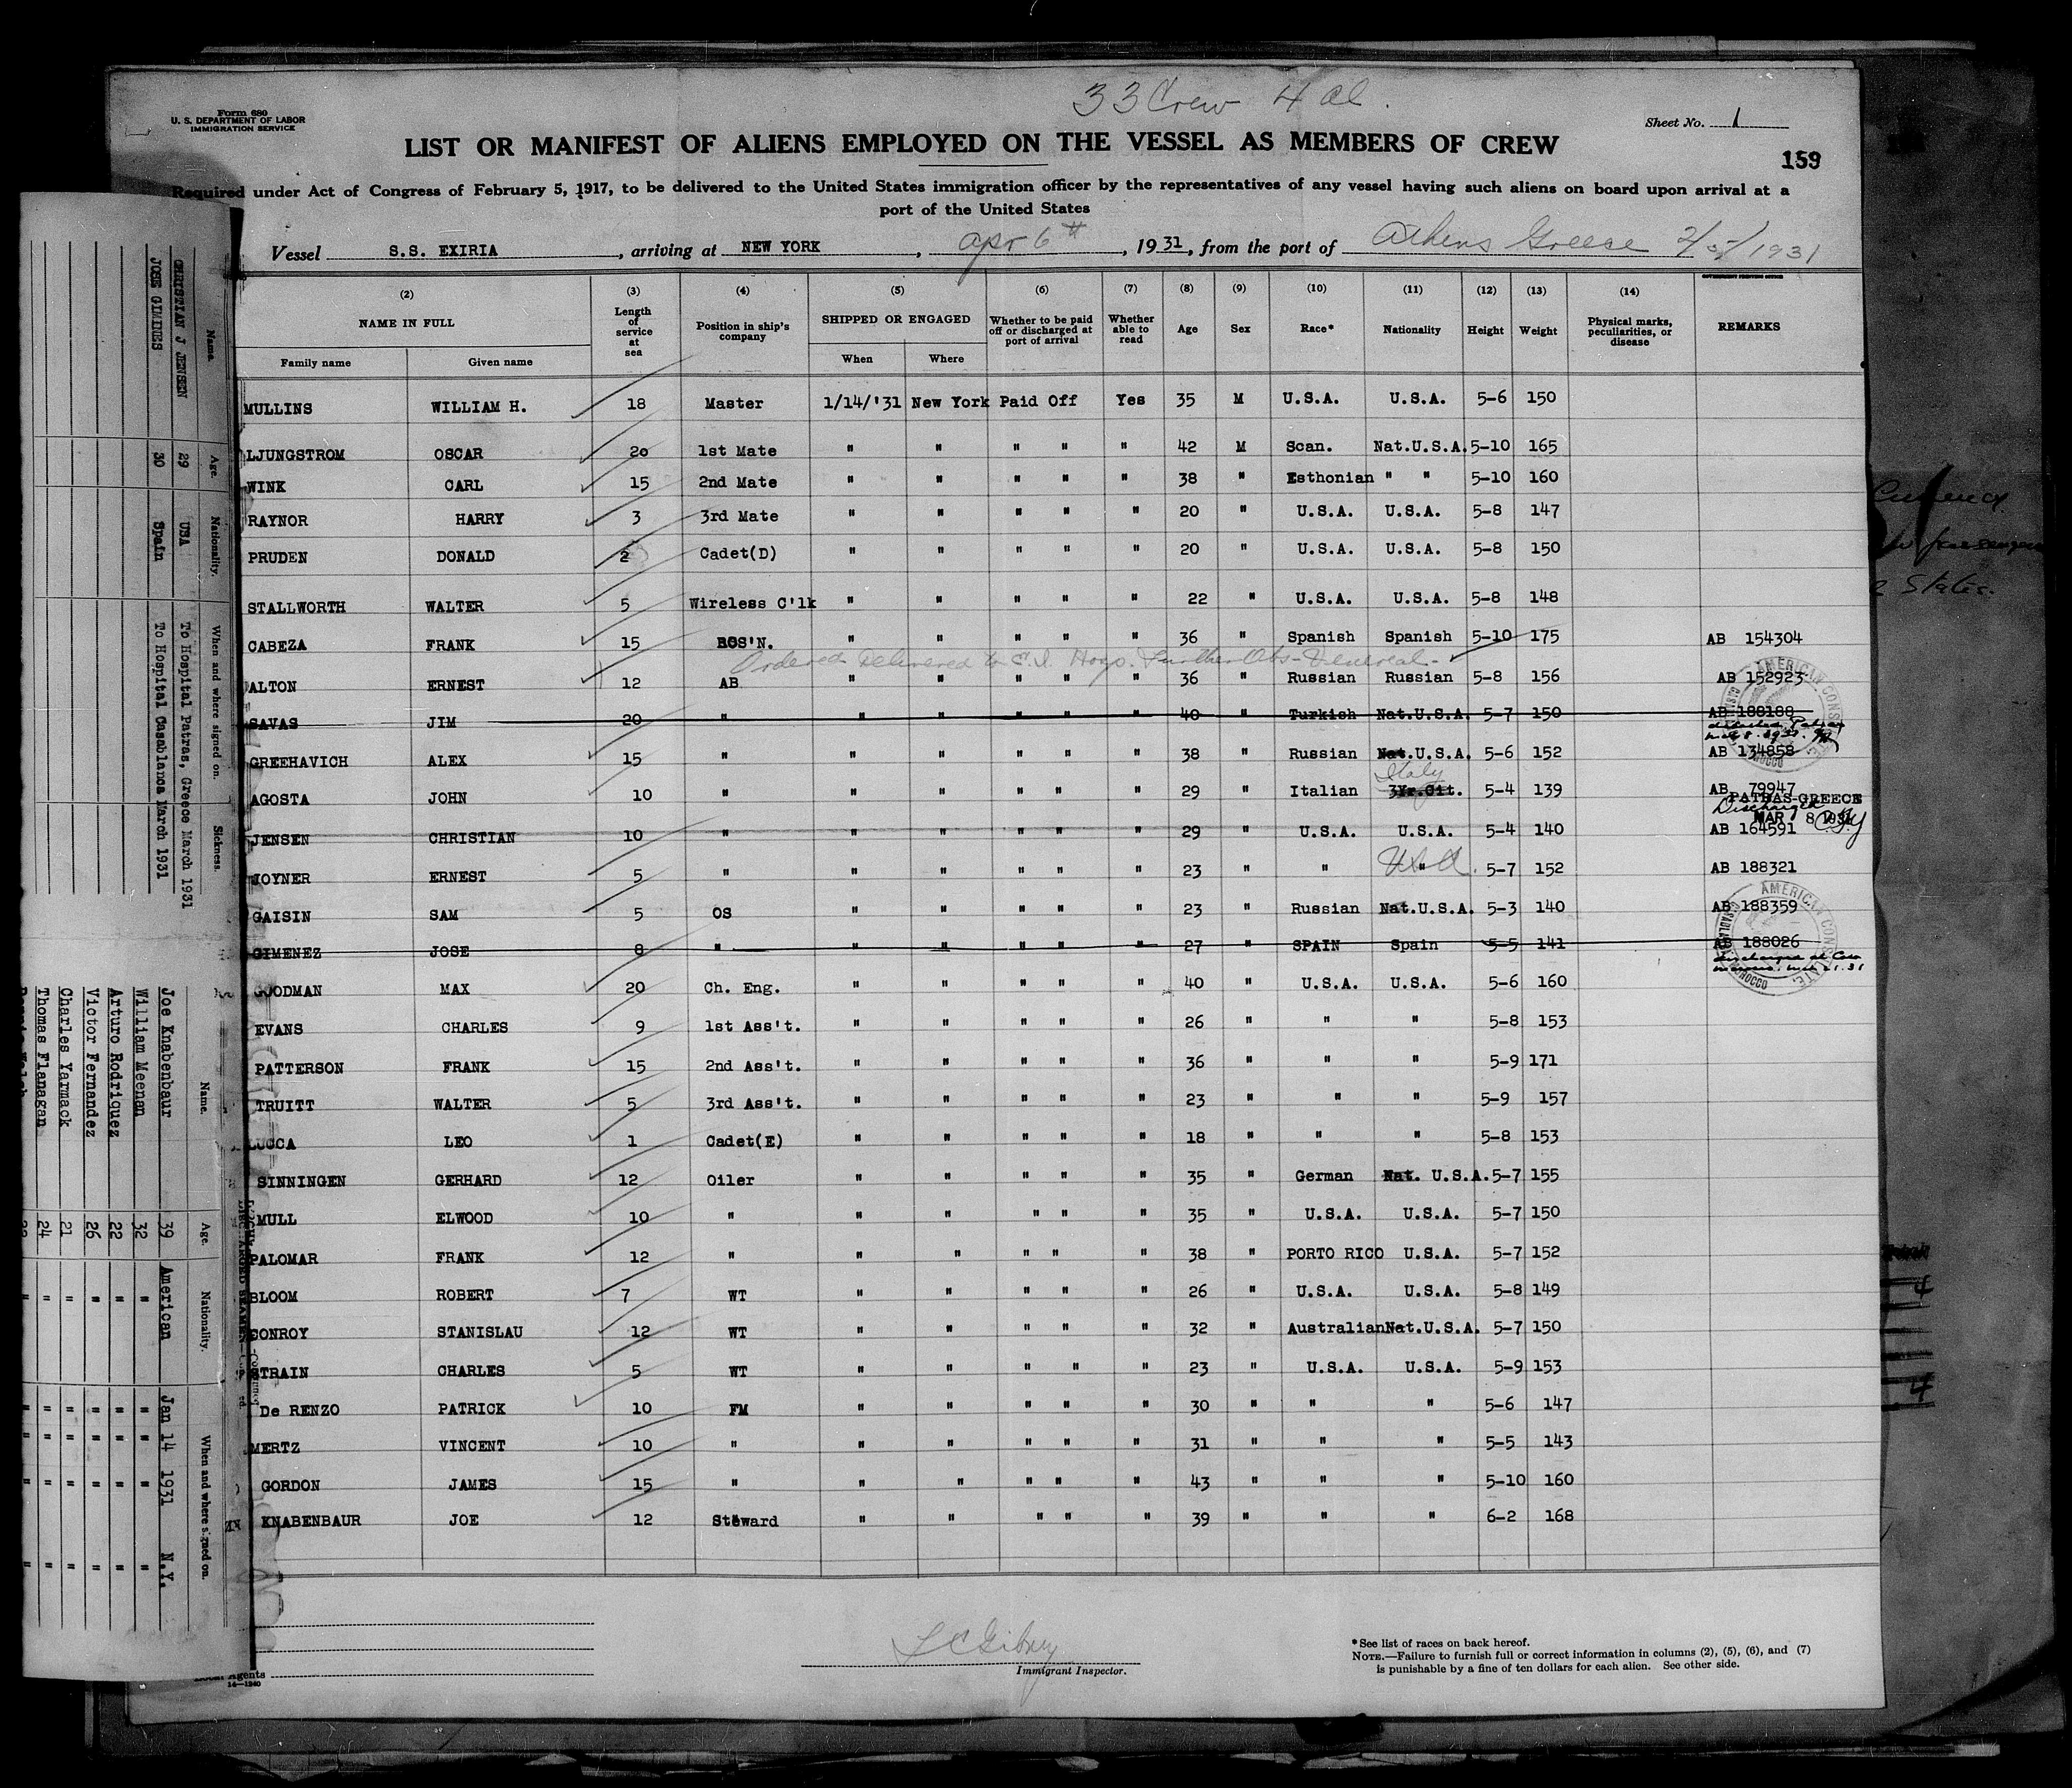 33 Crew 4 al.
Form 680
U. S. DEPARTMENT OF LABOR
IMMIGRATION SERVICE
Sheet No. 1
LIST OR MANIFEST OF ALIENS EMPLOYED ON THE VESSEL AS MEMBERS OF CREW
159
Required under Act of Congress of February 5, 1917, to be delivered to the United States immigration officer by the representatives of any vessel having such aliens on board upon arrival at a
port of the United States
Vessel S.S. EXIRIA, arriving at NEW YORK, Apr 6th, 1931, from the port of Athens Greece 2/25/1931
(2) (3) (4) (5) (6) (7) (8) (9) (10) (11) (12) (13) (14)
NAME IN FULL Length of service at sea Position in ship's company SHIPPED OR ENGAGED Whether to be paid off or discharged at port of arrival Whether able to read Age Sex Race* Nationality Height Weight Physical marks, peculiarities, or disease REMARKS
Family name Given name When Where
MULLINS WILLIAM H. 18 Master 1/14/'31 New York Paid Off Yes 35 M U.S.A. U.S.A. 5-6 150
LJUNGSTROM OSCAR 20 1st Mate " " " " " 42 M Scan. Nat.U.S.A. 5-10 165
WINK CARL 15 2nd Mate " " " " " 38 " Esthonian " " 5-10 160
RAYNOR HARRY 3 3rd Mate " " " " " 20 " U.S.A. U.S.A. 5-8 147
PRUDEN DONALD 2 Cadet(D) " " " " " 20 " U.S.A. U.S.A. 5-8 150
STALLWORTH WALTER 5 Wireless C'lk " " " " " 22 " U.S.A. U.S.A. 5-8 148
CABEZA FRANK 15 BOS'N. " " " " " 36 " Spanish Spanish 5-10 175 AB 154304
Ordered Delivered to E.I. Hosp. Further Obs - Venereal -
ALTON ERNEST 12 AB " " " " " 36 " Russian Russian 5-8 156 AB 152923
SAVAS JIM 20 " " " " " " 40 " Turkish Nat.U.S.A. 5-7 150 AB 188188
GREEHAVICH ALEX 15 " " " " " " 38 " Russian Nat.U.S.A. 5-6 152 AB 134858
Italy
AGOSTA JOHN 10 " " " " " " 29 " Italian 3Yr.Cit. 5-4 139 AB 79947
PATRAS-GREECE
Discharged MAR 8 1931
JENSEN CHRISTIAN 10 " " " " " " 29 " U.S.A. U.S.A. 5-4 140 AB 164591
JOYNER ERNEST 5 " " " " " " 23 " " " USA 5-7 152 AB 188321
GAISIN SAM 5 OS " " " " " 23 " Russian Nat.U.S.A. 5-3 140 AB 188359
GIMENEZ JOSE 8 " " " " " " 27 " SPAIN Spain 5-5 141 AB 188026
GOODMAN MAX 20 Ch. Eng. " " " " " 40 " U.S.A. U.S.A. 5-6 160
EVANS CHARLES 9 1st Ass't. " " " " " 26 " " " 5-8 153
PATTERSON FRANK 15 2nd Ass't. " " " " " 36 " " " 5-9 171
TRUITT WALTER 5 3rd Ass't. " " " " " 23 " " " 5-9 157
LUCCA LEO 1 Cadet(E) " " " " " 18 " " " 5-8 153
SINNINGEN GERHARD 12 Oiler " " " " " 35 " German Nat. U.S.A. 5-7 155
MULL ELWOOD 10 " " " " " " 35 " U.S.A. U.S.A. 5-7 150
PALOMAR FRANK 12 " " " " " " 38 " PORTO RICO U.S.A. 5-7 152
BLOOM ROBERT 7 WT " " " " " 26 " U.S.A. U.S.A. 5-8 149
CONROY STANISLAU 12 WT " " " " " 32 " Australian Nat.U.S.A. 5-7 150
STRAIN CHARLES 5 WT " " " " " 23 " U.S.A. U.S.A. 5-9 153
De RENZO PATRICK 10 FM " " " " " 30 " " " 5-6 147
MERTZ VINCENT 10 " " " " " " 31 " " " 5-5 143
GORDON JAMES 15 " " " " " " 43 " " " 5-10 160
KNABENBAUR JOE 12 Steward " " " " " 39 " " " 6-2 168
AMERICAN CONSULATE
MOROCCO
AMERICAN CONSULATE
MOROCCO
Immigrant Inspector.
*See list of races on back hereof.
NOTE.—Failure to furnish full or correct information in columns (2), (5), (6), and (7)
is punishable by a fine of ten dollars for each alien. See other side.
14—1240
Name Age. Nationality. When and where signed on. Sickness.
CHRISTIAN J JENSEN 29 USA To Hospital Patras, Greece March 1931
JOSE GIMINES 30 Spain To Hospital Casablanca March 1931
Name. Age. Nationality. When and where signed on.
Joe Knabenbaur 39 American Jan 14 1931 N.Y.
William Meenan 32 " " " " "
Arturo Rodriquez 22 " " " " "
Victor Fernandez 26 " " " " "
Charles Yarmack 21 " " " " "
Thomas Flanagan 24 " " " " "
Currency
passengers
States.
4
4